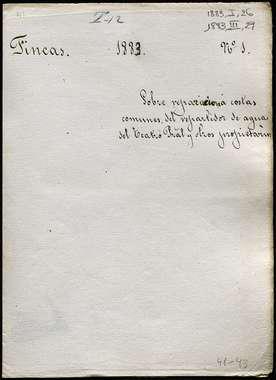 I-12
1883. I, 26
1883 III, 29
Fincas. 1883. Nº 1.
Sobre reparacion á costas
comunes del repartidor de agua
del Teatro Real y otros propietarios
41-43